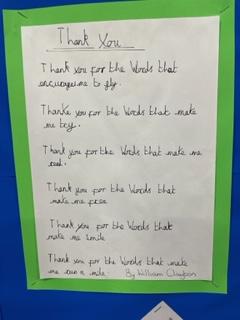 Thank You
Thank you for the Words that
encourage me to fly.
Thanke you for the Words that make
me try.
Thank you for the Words that make me
Thank you for the Words that
make me free
Thank you for the Words that
make me smile
Thank you for the Words that make
me run a mile. By William